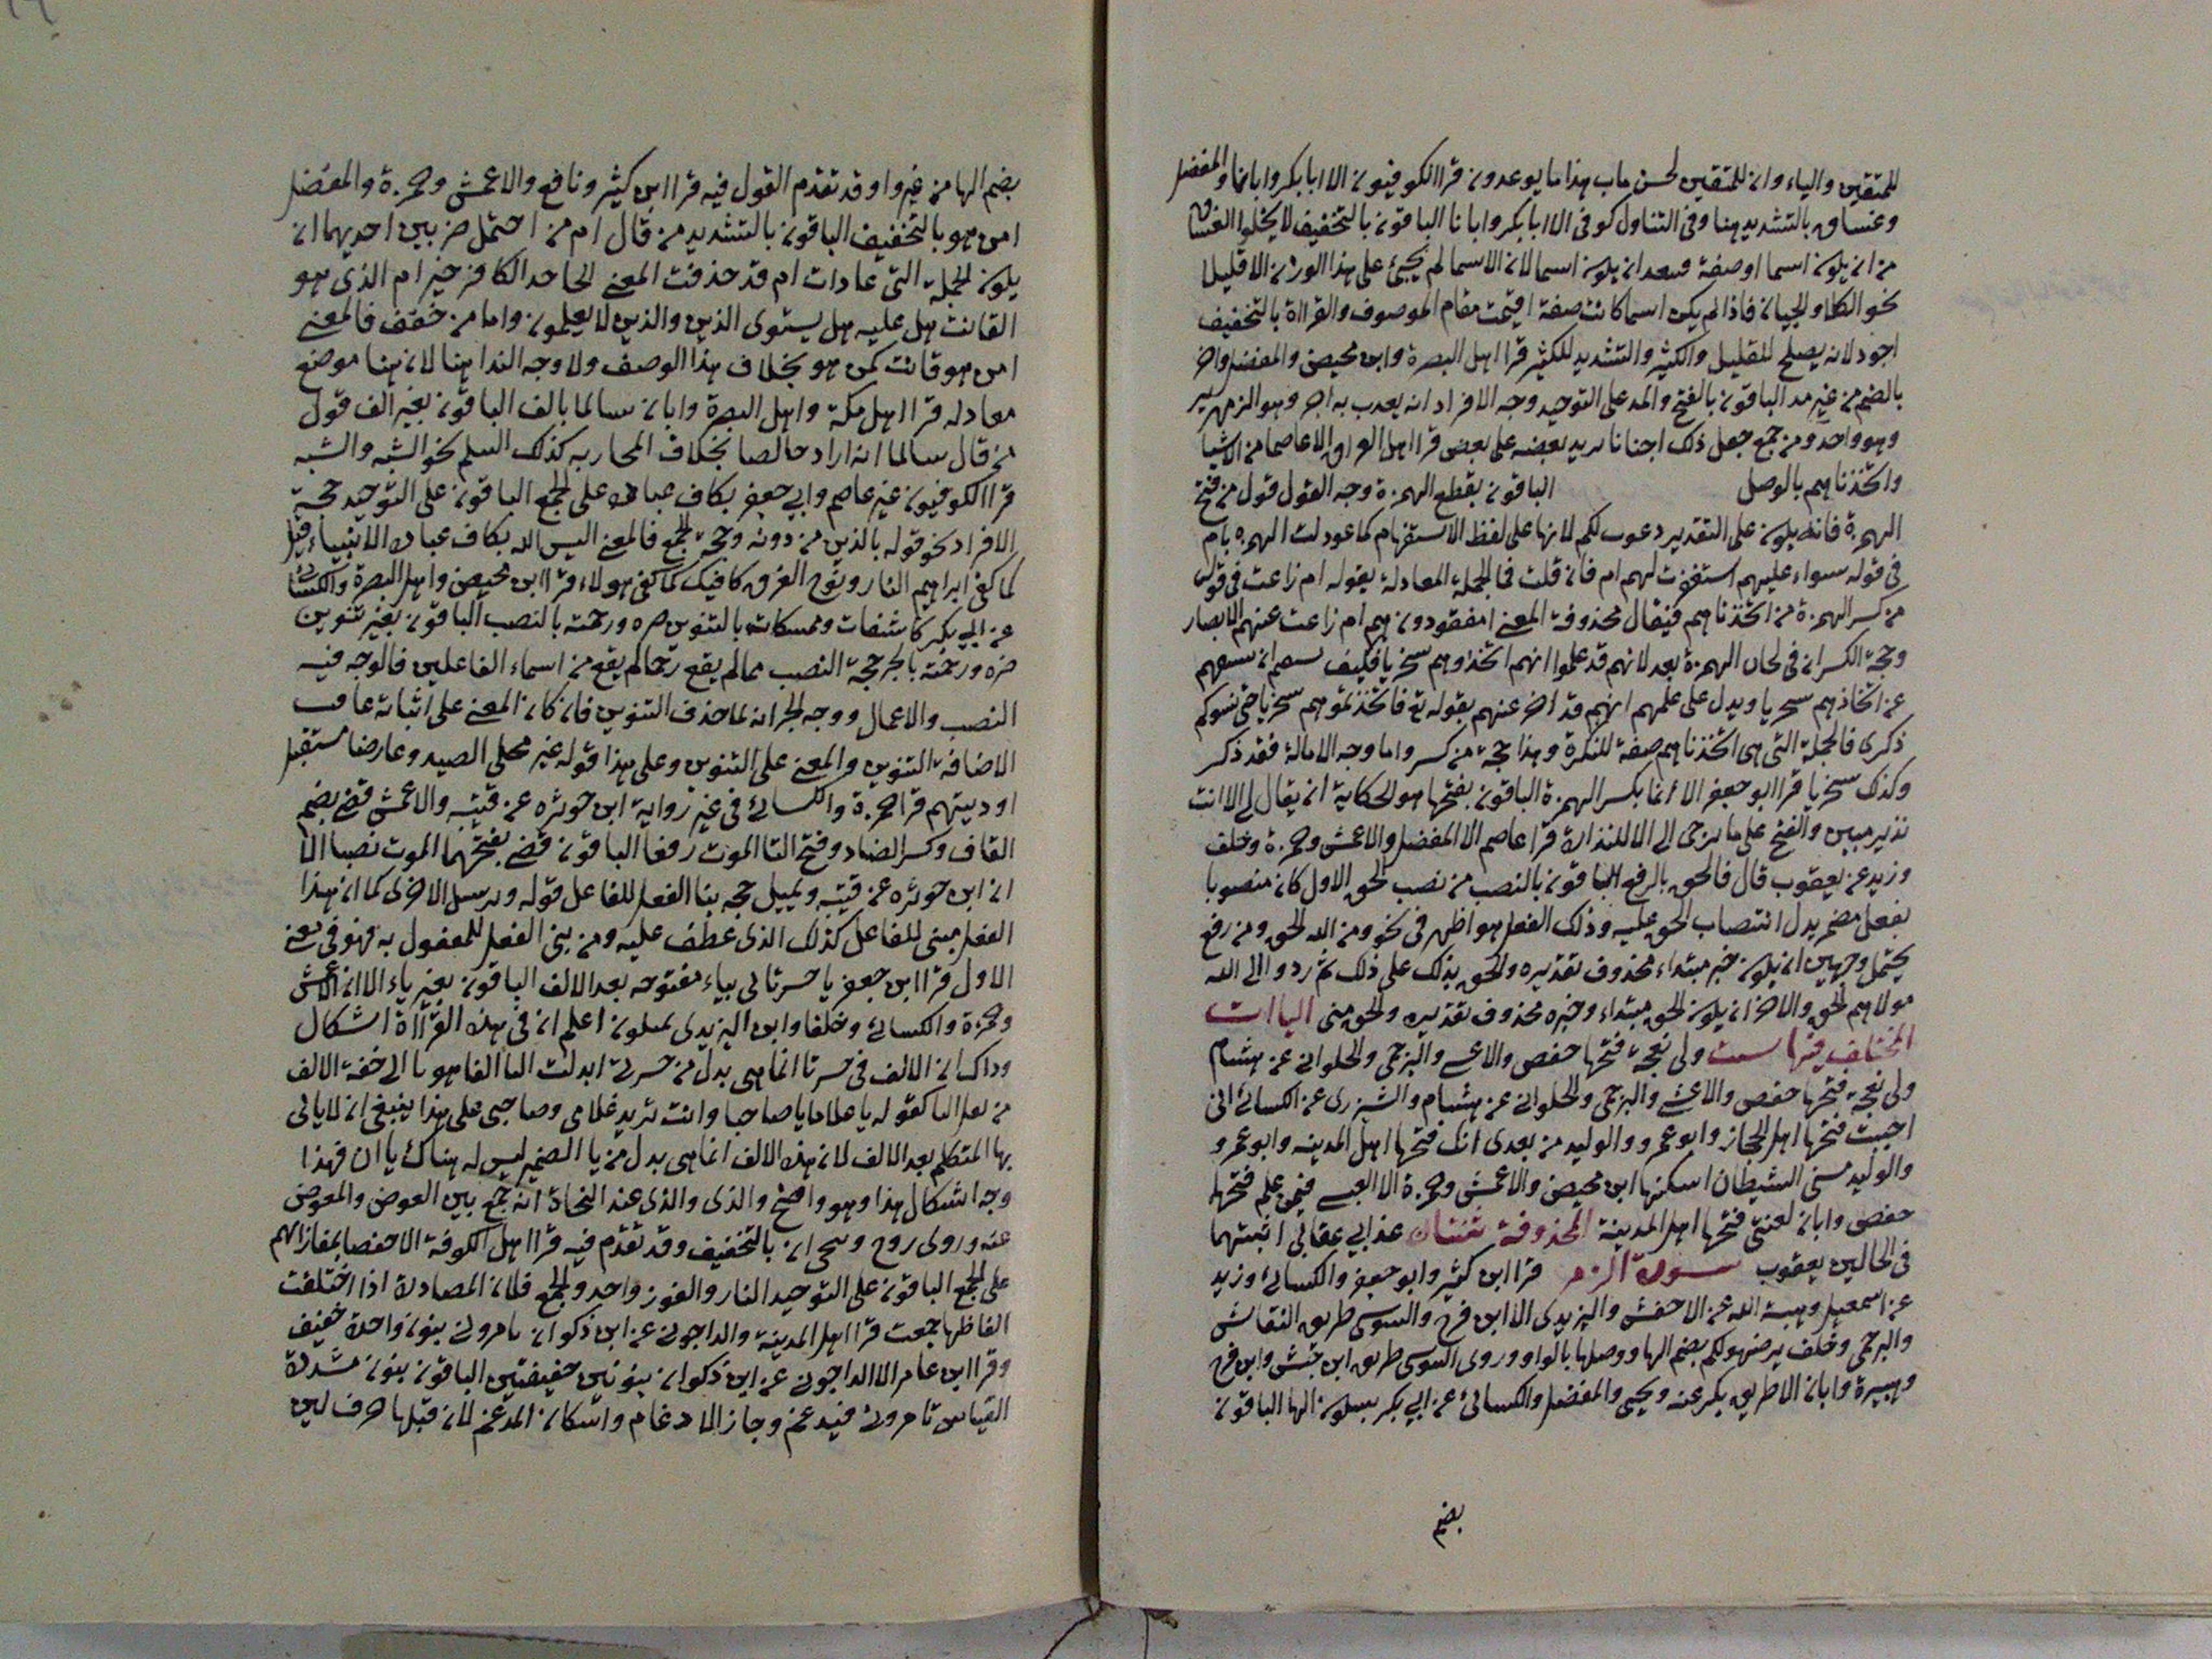 للمتقين والياء وان للمتقين لحسن ماب هذا ما يوعدون قرا الكوفيون الا ابا بكر وابانا والمفضل
وغساق بالتشديد هنا وفى التناول كوفى الا ابا بكر وابانا الباقون بالتخفيف لا يخلوا الغساق
من ان يكون اسما او صفة وبعد ان يكون اسما لان الاسما لم يجئ على هذا الوزن الا قليلا
نحو الكلا والجبان فاذا لم يكن اسما كانت صفة اقيمت مقام الموصوف والقراة بالتخفيف
اجود لانه يصلح للقليل والكثير والتشديد للكثير قرا اهل البصرة وابن محيصن والمفضل واخر
بالضم من غير مد الباقون بالفتح والمد على التوحيد وجه الافراد انه يعدب به اخر وهو الزمهرير
وهو واحد ومن جمع جعل ذلك اجناسا يريد بعضه على بعض قرا اهل العراق الا عاصما من الاشرار
واتخذناهم بالوصل الباقون بقطع الهمزة وجه القول قول من فتح
الهمزة فانه يكون على التقدير دعوب لكم لانها على لفظ الاستفهام كما عودلت الهمزة بام
فى قوله سواء عليهم استغفرت لهم ام فان قلت فما الجملة المعادلة بقوله ام زاغت فى قول
من كسر الهمزة من اتخذناهم فيقال محذوفة المعنى امفقودون هم ام زاغت عنهم الابصار
وحجة الكسر انه فى لحاق الهمزة بعد لانهم قد علموا انهم اتخذوهم سخريا فكيف
عن اتخاذهم سخريا ويدل على علمهم انهم قد اخبر عنهم بقوله تع فاتخذتموهم سخريا حتى انسوكم
ذكرى فالجملة التى هى اتخذناهم صفة للنكرة وهذا حجة من كسر واما وجه الامالة فقد ذكر
وكذلك سخريا قرا ابو جعفر الا انما بكسر الهمزة الباقون بفتحها هو لحكاية ان يقال لى الا انت
نذير مبين والفتح على ما يوحى الى الا للنذارة قرا عاصم الا المفضل والاعمش وحمزة وخلف
وزيد عن يعقوب قال فالحق بالرفع الباقون بالنصب من نصب الحق الاول كان منصوبا
بفعل مضمر يدل انتصاب الحق عليه وذلك الفعل هو اظهر فى نحو ومن الله الحق ومن رفع
يحتمل وجهين ان يكون خبر مبتداء محذوف تقديره والحق يدلك على ذلك ثم ردوا الى الله
مولاهم الحق والاخر ان يكون الحق مبتداء وخبره محذوف تقديره والحق منى الياات
المختلف فيها ست ولى نعجة فتحها حفص والاعشى والبرجمى والحلوانى عن هشام
ولى نعجة فتحها حفص والاعشى والبرجمى والحلوانى عن هشام والشيزرى عن الكسائى انى
احببت فتحها اهل الحجاز وابو عمرو والوليد من بعدى انك فتحها اهل المدينه وابو عمرو
والوليد مسنى الشيطان اسكنها ابن محيصن والاعمش وحمزة الا العبسى من علم فتحها
حفص وابان لعنتى فتحها اهل المدينة المحذوفة ثنتان عذابى عقابى اثبتهما
فى الحالين يعقوب سورة الزمر قرا ابن كثير وابو جعفر والكسائى وزيد
عن اسمعيل وهبة الله عن الاخفش واليزيدى الا ابن فرح والسوسى طريق النقاش
والبرجمى وخلف يرضهو لكم بضم الها ووصلها بالواو وروى السوسى طريق ابن حبش وابن فرح
وهبيرة وابان الا طريق بكر عنه ويحيى والمفضل والكسائى عن ابى بكر بسكون الها الباقون
بضم
بضم الها من غير واو قد تقدم القول فيه قرا ابن كثير ونافع والاعمش وحمزة والمفضل
امن هو بالتخفيف الباقون بالتشديد من قال ام من احتمل ضربين احديهما ان
يكون الجملة التى عادات ام قد حذفت المعنى الجاحد الكافر خير ام الذى هو
القانت هل عليه هل يستوى الذين والذين لا يعلمون واما من خفف فالمعنى
امن هو قانت كمن هو بخلاف هذا الوصف ولا وجه الندا هنا لان هنا موضع
معادله قرا اهل مكة واهل البصرة وابان سالما بالف الباقون بغير الف قول
من قال سالما انه اراد خالصا بخلاف المحاربه كذلك السلم نحو الشبه والشبه
قرا الكوفيون غير عاصم وابى جعفر بكاف عباده على الجمع الباقون على التوحيد حجة
الافراد نحو قوله بالذين من دونه وحجة الجمع فالمعنى اليس الله بكاف عباده الانبياء قبل
كما كفى ابراهيم النار ونوح الغرق كافيك كما كفى هولاء قرا ابن محيصن واهل البصرة والكسائى
عن ابى بكر كاشفات وممسكات بالتنوين ضره ورحمته بالنصب الباقون بغير تنوين
ضره ورحمته بالجر حجة النصب مما لم يقع وما لم يقع من اسماء الفاعلين فالوجه فيه
النصب والاعمال ووجه الجر انه لما حذف التنوين فان كان المعنى على اثباته عاقب
الاضافة التنوين والمعنى على التنوين وعلى هذا قوله غير محلى الصيد وعارضا مستقبل
اوديتهم قرا حمزة والكسائى فى غير رواية ابن حوثره عن قتيبه والاعمش قضى بضم
القاف وكسر الضاد وفتح التا الموت رفعا الباقون قضى بفتحهما الموت نصبا الا
ان ابن حوثره عن قتيبه ويميل حجه بنا الفعل للفاعل قوله ويرسل الاخرى كما ان هذا
الفعل مبنى للفاعل كذلك الذى عطف عليه ومن بنى الفعل للمفعول به فهو فى معنى
الاول قرا ابن جعفر يا حسرتا لى بياء مفتوحه بعد الالف الباقون بغير ياء الا ان الاعمش
وحمزة والكسائى وخلفا وابن اليزيدى يميلون اعلم ان فى هذه القراة اشكال
وذاك ان الالف فى حسرتا انما هى بدل من حسرتى ابدلت اليا الفا هوبا الى خفة الالف
من ثقل اليا كقوله يا غلاما يا صاحبا وانت تريد غلامى وصاحبى على هذا ينبغى ان لا ياتى
بها المتكلم بعد الالف لان هذه الالف انما هى بدل من يا الضمير ليس له هناك يا ان فهذا
وجه اشكال هذا وهو واضح والذى والذى عند النحاة انه جمع بين العوض والمعوض
عنه وروى روح وينجى ان بالتخفيف وقد تقدم فيه قرا اهل الكوفة الا حفصا بمفازاتهم
على الجمع الباقون على التوحيد النار والفوز واحد والجمع فلان المصادرة اذا اختلفت
الفاظها جمعت قرا اهل المدينة والداجونى عن ابن ذكوان تامرونى بنون واحدة خفيف
وقرا ابن عامر الا الداجونى عن ابن ذكوان بنونين خفيفتين الباقون بنون مشددة
القياس تامرونى فيدغم وجاز الادغام واسكان المدغم لان قبلها حرف لين